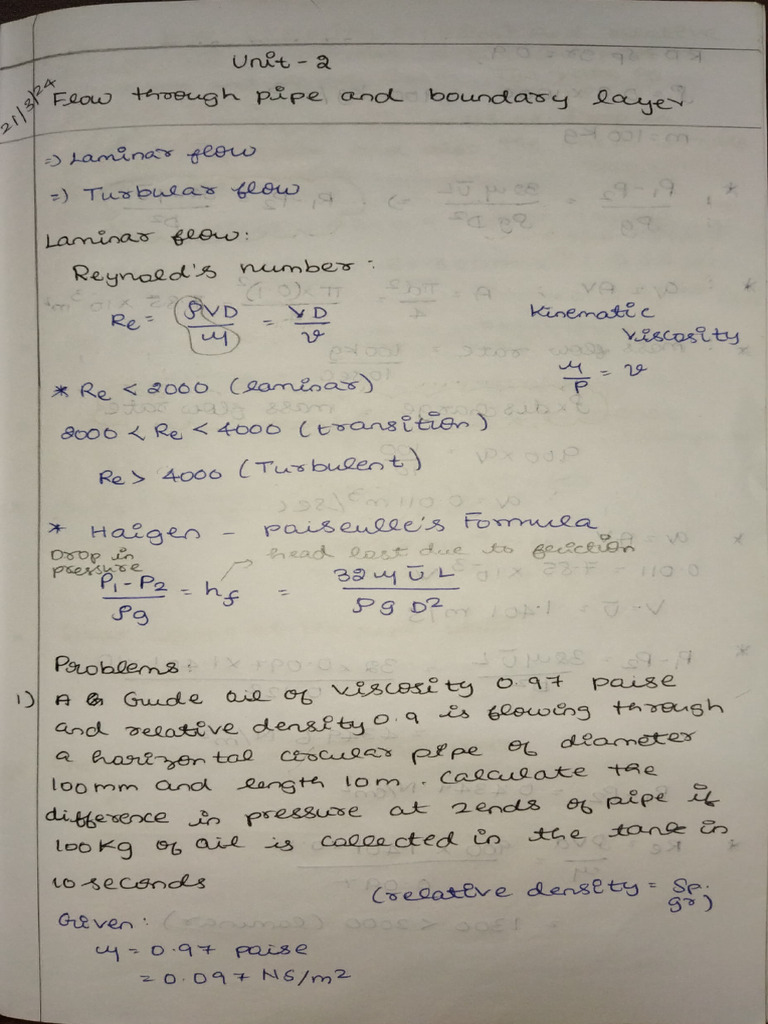 Unit - 2
21/3/24
Flow through pipe and boundary layer
=> Laminar flow
=> Turbular flow
Laminar flow:
Reynold's number:
Re = ρVD/μ = VD/ν
Kinematic
viscosity
μ/ρ = ν
* Re < 2000 (laminar)
2000 < Re < 4000 (transition)
Re > 4000 (Turbulent)
* Haigen - paiseulle's Formula
Drop in
pressure
head lost due to friction
P1-P2/ρg = hf = 32 μ Ū L/ρg D²
Problems:
1) A Crude oil of viscosity 0.97 paise
and relative density 0.9 is flowing through
a horizontal circular pipe of diameter
100mm and length 10m. Calculate the
difference in pressure at 2ends of pipe if
100kg of oil is collected in the tank in
10 seconds
(relative density = Sp.
gr)
Given:
μ = 0.97 paise
= 0.097 NS/m2